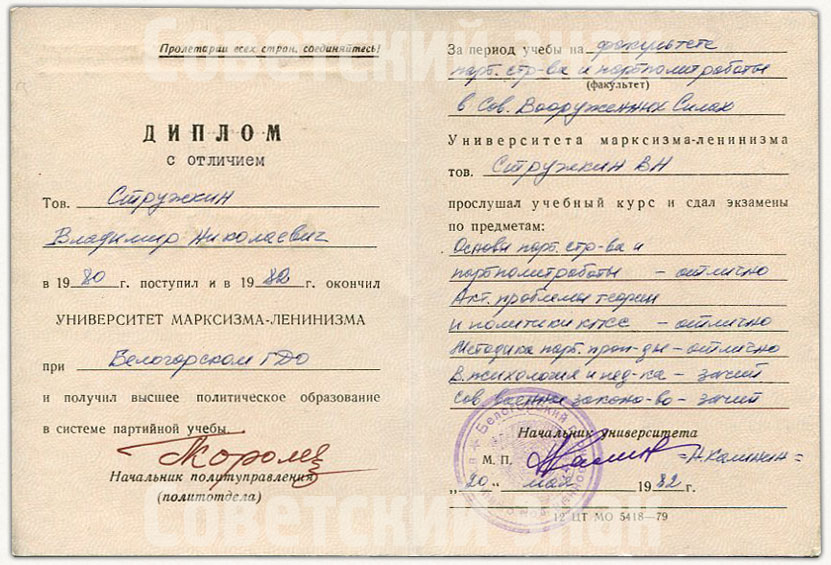 Пролетарии всех стран, соединяйтесь!
ДИПЛОМ
с отличием
Тов. Стружкин
Владимир Николаевич
в 1980 г. поступил и в 1982 г. окончил
УНИВЕРСИТЕТ МАРКСИЗМА-ЛЕНИНИЗМА
при Белогорском ГДО
и получил высшее политическое образование
в системе партийной учебы.
Начальник политуправления
(политотдела)
За период учебы на факультете
парт. стр-ва и партполитработы
(факультет)
в Сов. Вооруженных Силах
Университета марксизма-ленинизма
тов. Стружкин ВН
прослушал учебный курс и сдал экзамены
по предметам:
Основы парт. стр-ва и
партполитработы – отлично
Акт. проблемы теории
и политики КПСС – отлично
Методика парт. проп-ды – отлично
В. психология и пед-ка – зачет
Сов. военное законо-во – зачет
Начальник университета
М. П. =Н.Калинин=
„20" мая 1982 г.
12 ЦТ МО 5418—79
Советский знак
Советский знак